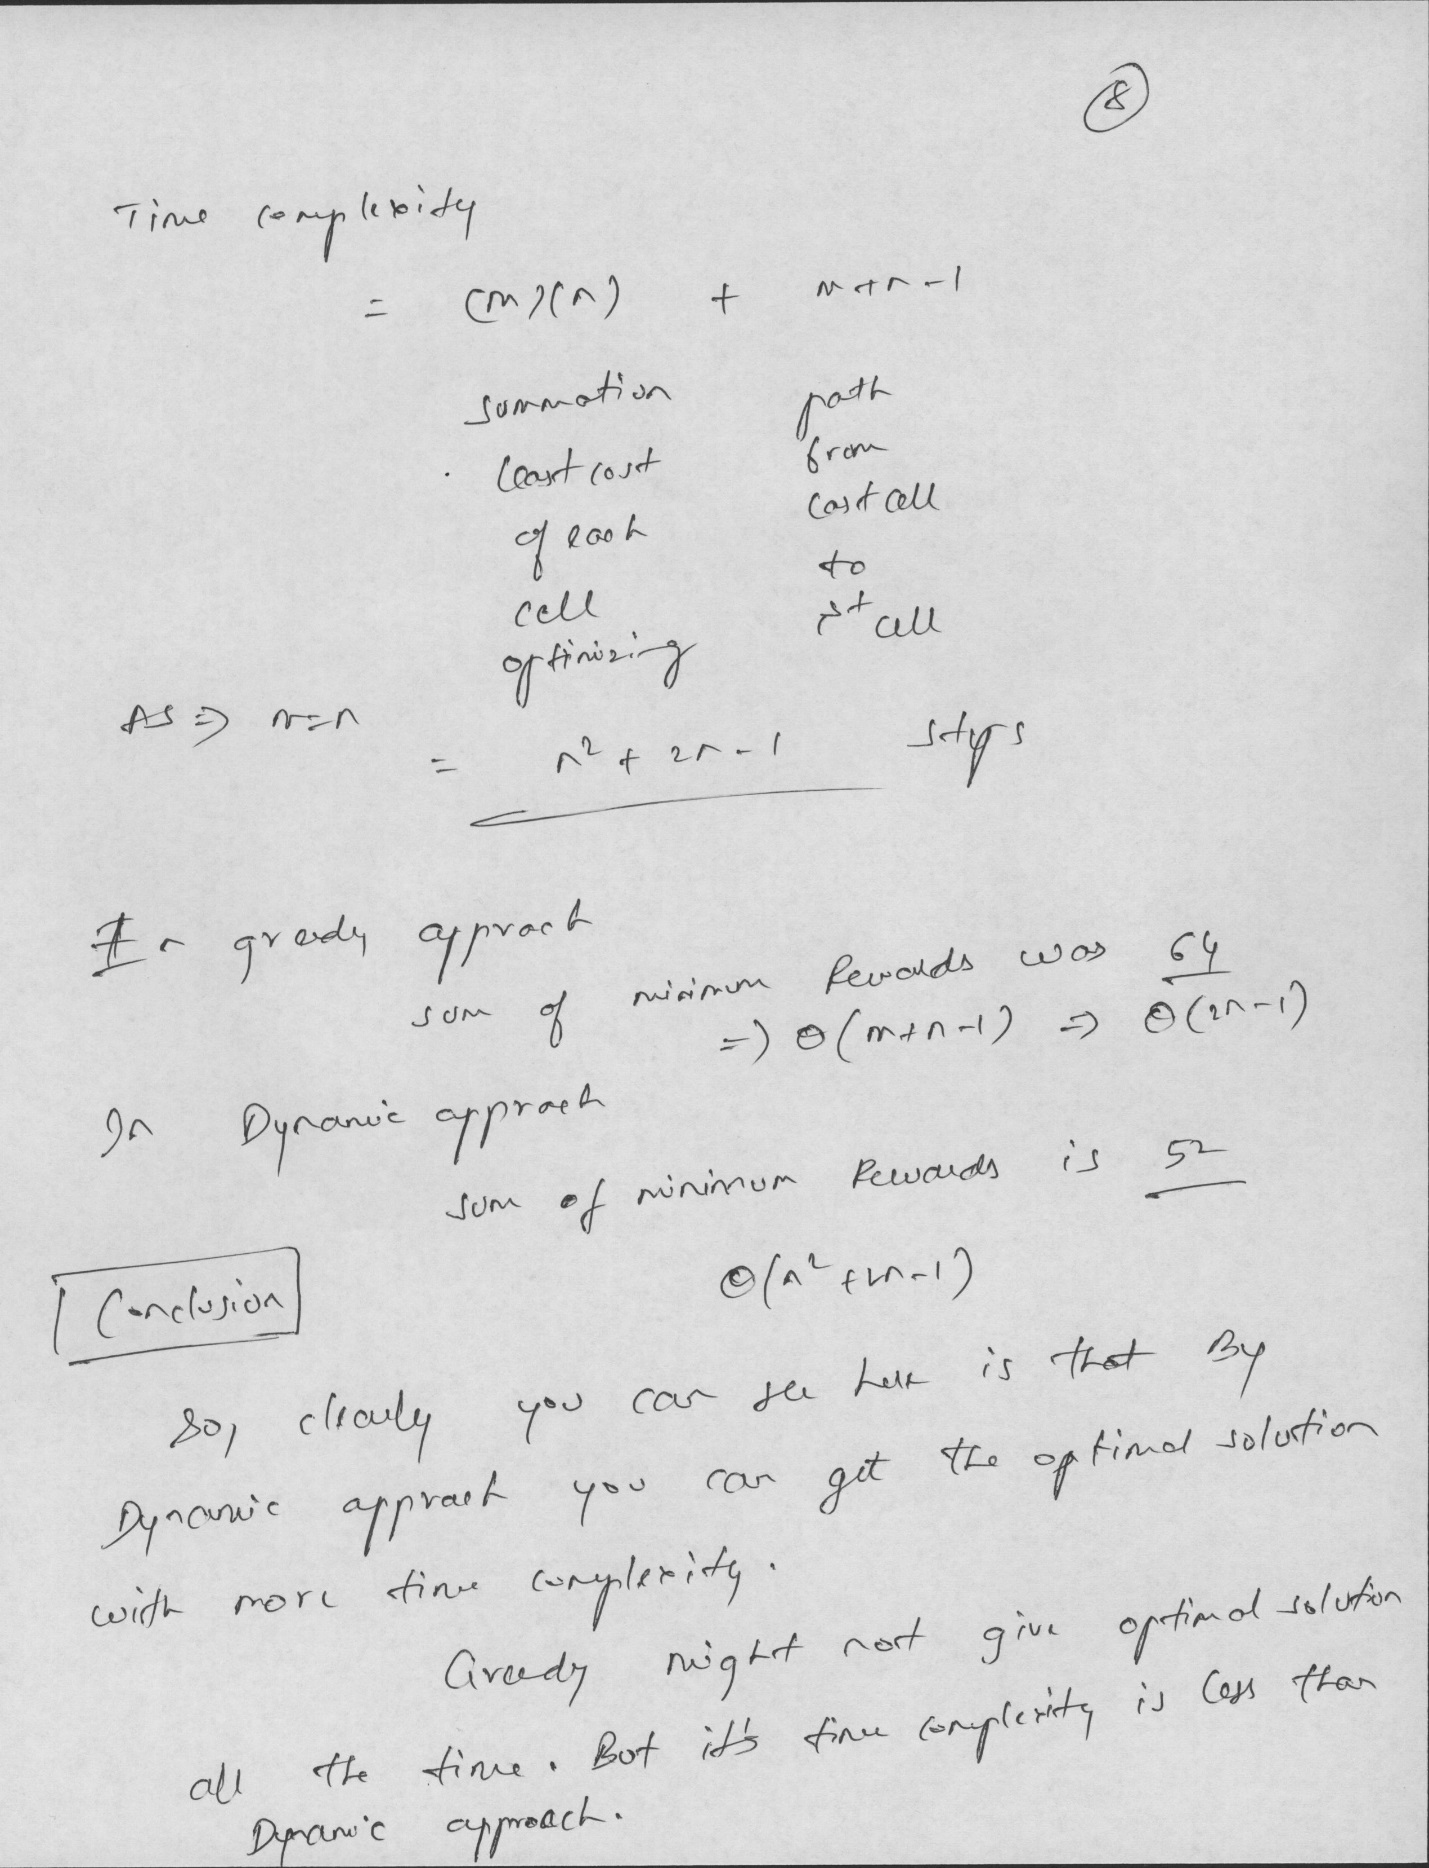 8
Time complexity
= (m)(n) + m+n-1
summation path
least cost from
of each last cell
cell to
optimizing 1st cell
As => m=n
= n² + 2n - 1 steps
In greedy approach
sum of minimum Rewards was 64
=> Θ(m+n-1) => Θ(2n-1)
In Dynamic approach
sum of minimum Rewards is 52
Θ(n²+2n-1)
Conclusion
So, clearly you can see here is that By
Dynamic approach you can get the optimal solution
with more time complexity.
Greedy might not give optimal solution
all the time. But it's time complexity is less than
Dynamic approach.